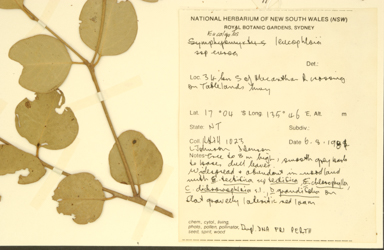 NATIONAL HERBARIUM OF NEW SOUTH WALES (NSW)
ROYAL BOTANIC GARDENS, SYDNEY
Eucalyptus
Symphyomyrtus leucophloia
ssp euroa
Det:
Loc: 34 km S of Macarthur R crossing
on Tablelands Hwy
Lat 17 ° 04 S Long 135 ° 46 E. Alt. m
State: NT Subdiv:
Coll. Hill 1023 Date 6.8.1984
Johnson Benson
Notes: Tree to 8 m high, smooth grey bark
to base, dull leaves
Widespread + abundant in woodland
with E. tectifica
C. dichromophloia s.l, E grandifolia on
flat gravelly lateritic red loam
chem, cytol, living,
photo, pollen, palmate,
seed, spirit, wood
Dupl DNA PRI PERTH